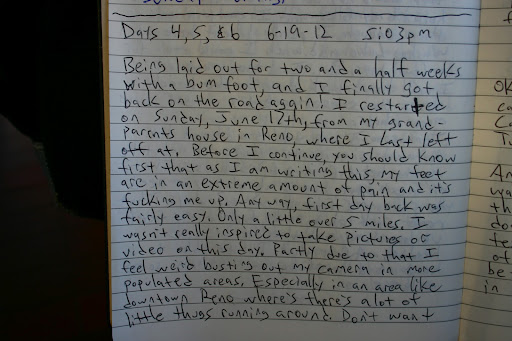 Days 4, 5, & 6 6-19-12 5:03pm
Being laid out for two and a half weeks
with a bum foot, and I finally got
back on the road again! I restarted
on Sunday, June 17th, from my grand-
parents house in Reno, where I last left
off at. Before I continue, you should know
first that as I am writing this, my feet
are in an extreme amount of pain and it's
fucking me up. Any way, first day back was
fairly easy. Only a little over 5 miles. I
wasn't really inspired to take pictures or
video on this day. Partly due to that I
feel weird busting out my camera in more
populated areas. Especially in an area like
downtown Reno where's there's a lot of
little thugs running around. Don't want